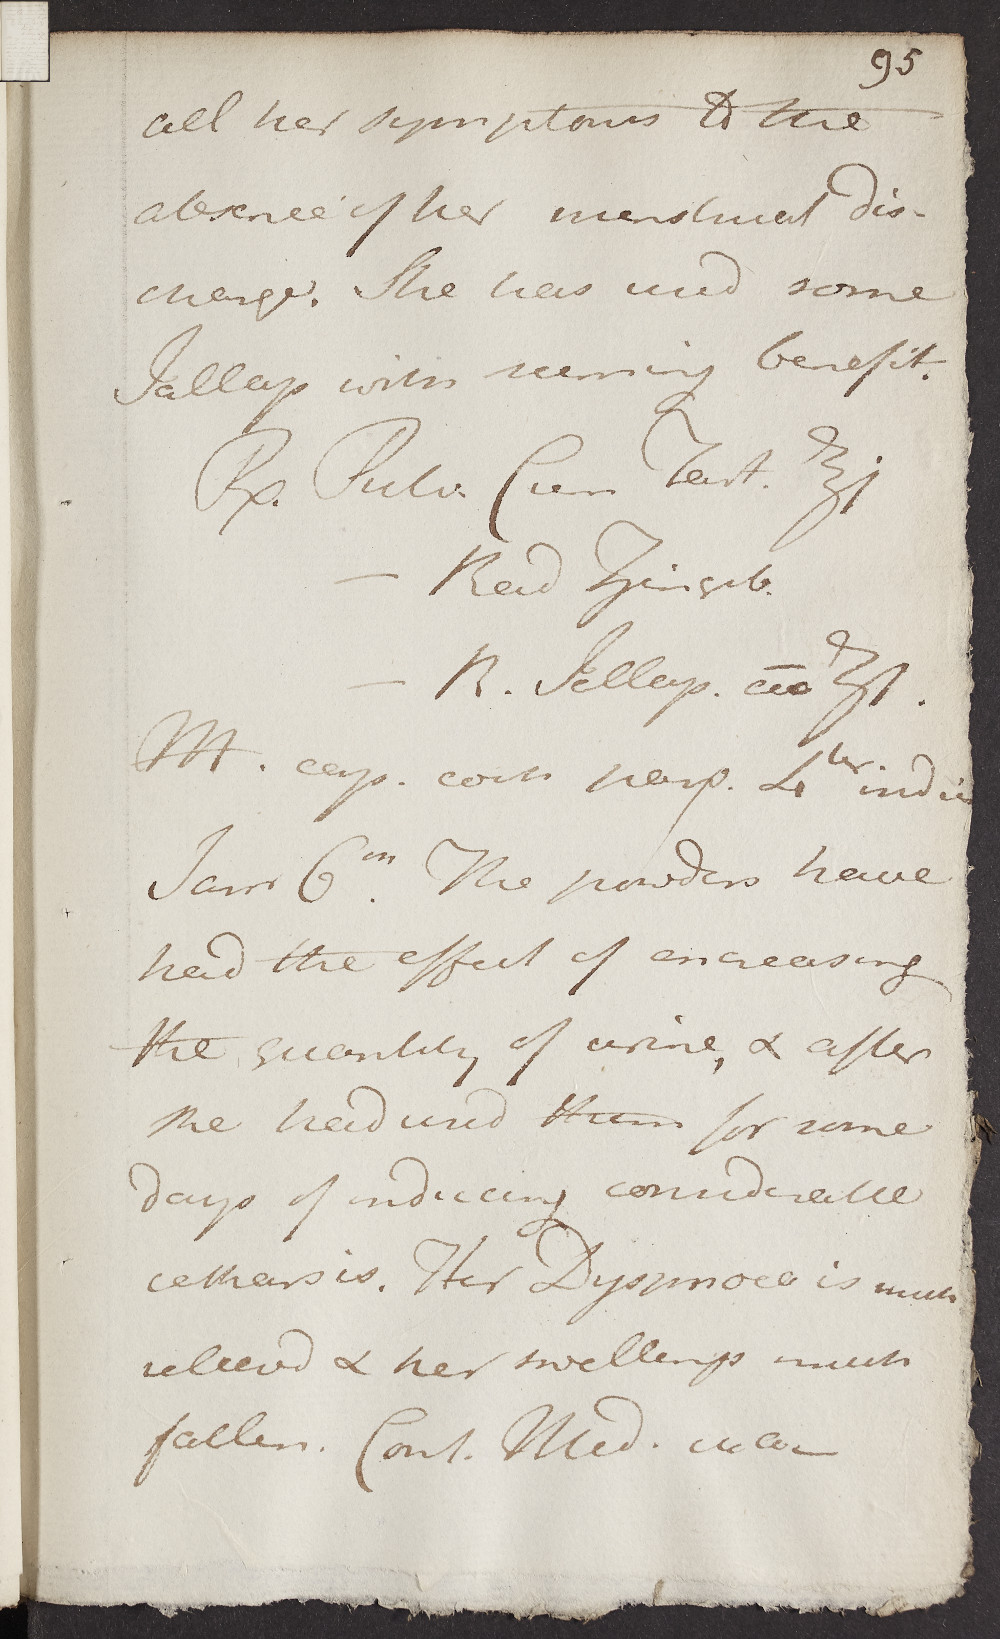 95
all her symptoms to the
absence of her menstrual dis-
charge. She has used some
Jallap with seeming benefit.
Rx. Pulv. Crem Tart. ℥j
— Rad Zjingib.
— R. Jallap. aa ʒj.
M. cap. coch parv. 4ter indies
Janr 6th. The powders have
had the effect of encreasing
the quantity of urine, & after
she had used them for some
days of inducing considerable
catharsis. Her Dyspnoea is much
relieved & her swellings much
fallen. Cont. Med.